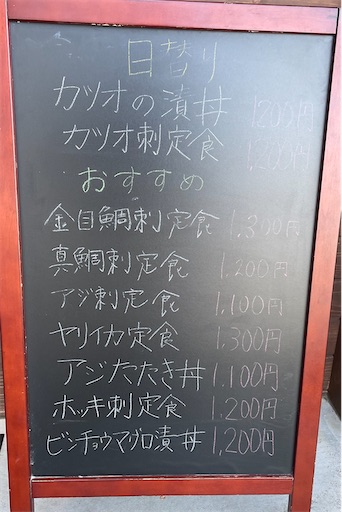 日替り
カツオの漬丼 1200円
カツオ刺定食 1,200円
おすすめ
金目鯛刺定食 1,300円
真鯛刺定食 1,200円
アジ刺定食 1,100円
ヤリイカ定食 1,300円
アジたたき丼 1,100円
ホッキ刺定食 1,200円
ビンチョウマグロ漬丼 1,200円